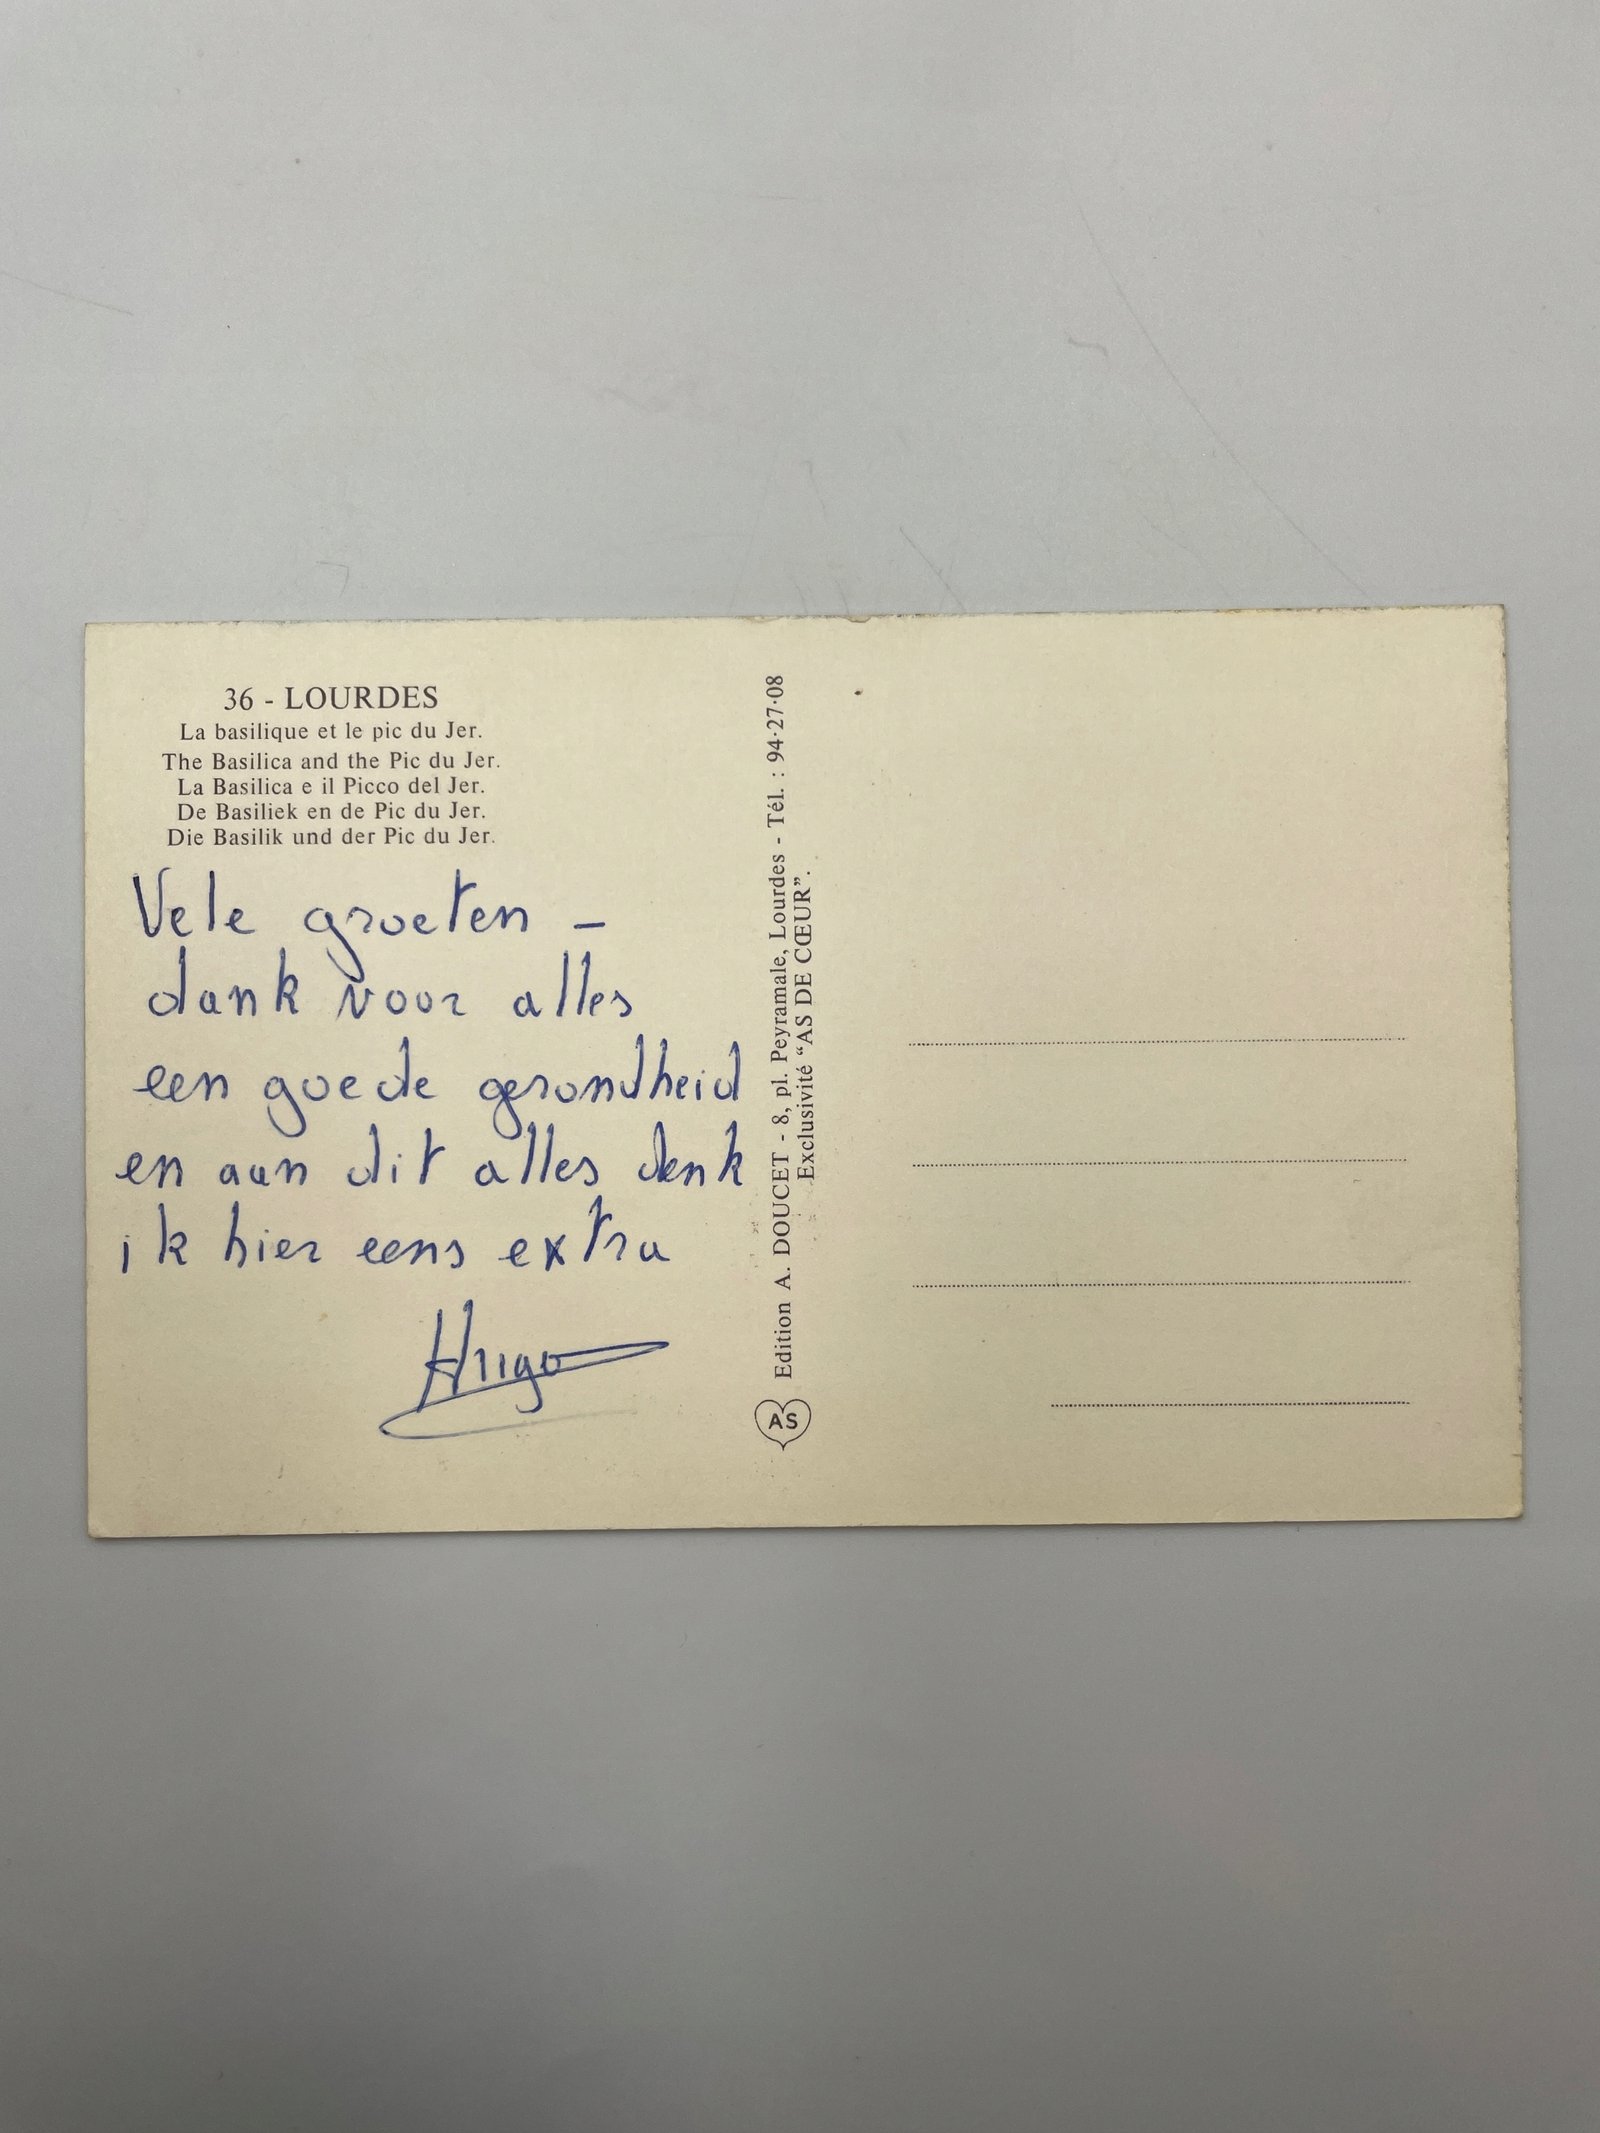 36 - LOURDES
La basilique et le pic du Jer.
The Basilica and the Pic du Jer.
La Basilica e il Picco del Jer.
De Basiliek en de Pic du Jer.
Die Basilik und der Pic du Jer.
Vele groeten –
dank voor alles
een goede gezondheid
en aan dit alles denk
ik hier eens extra
Hugo
Edition A. DOUCET - 8, pl. Peyramale, Lourdes - Tél. : 94·27·08
Exclusivité “AS DE CŒUR”.
AS